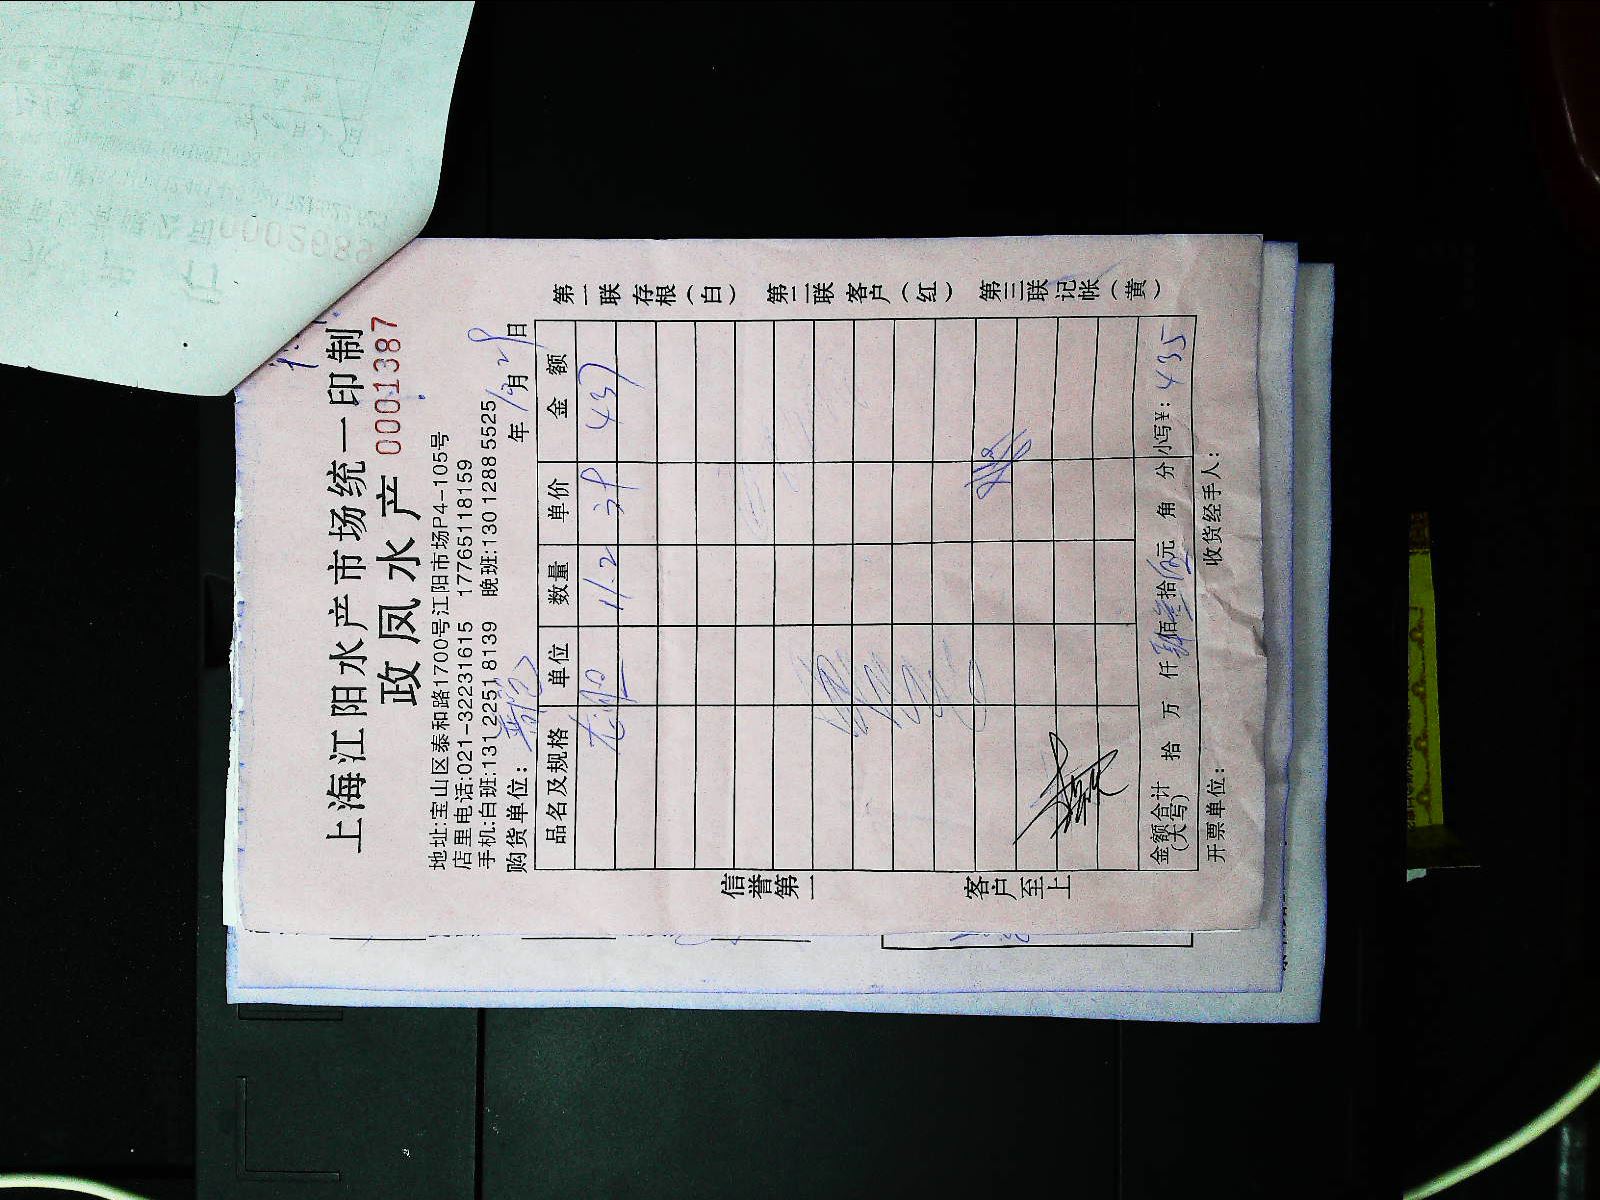 上海江阳水产市场统一印制
政凤水产 0001387
地址:宝山区泰和路1700号江阳市场P4-105号
店里电话:021-32231615 17765118159
手机:白班:13122518139 晚班:13012885525
购货单位: 年12月29日
品名及规格 单位 数量 单价 金额
11.2 39 437
金额合计(大写) 拾 万 仟 肆佰叁拾伍元 角 分 小写¥: 435
开票单位: 收货经手人:
第一联 存根(白) 第二联 客户(红) 第三联 记帐(黄)
信誉第一 客户至上
0002689